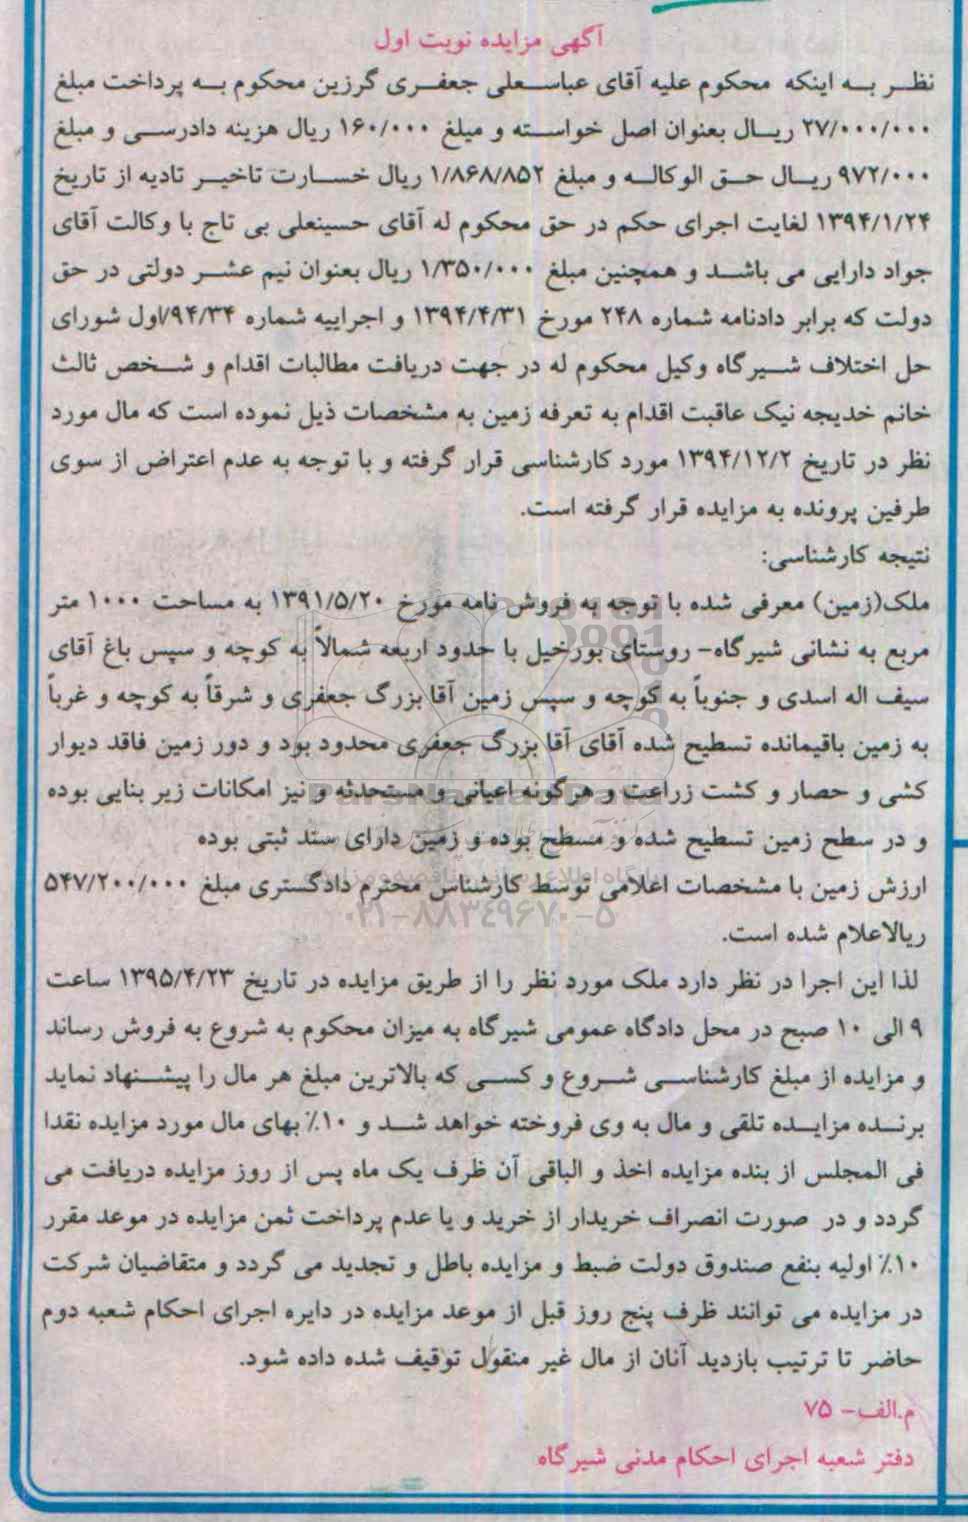 آگهی مزایده نوبت اول
نظر به اینکه محکوم علیه آقای عباسعلی جعفری گرزین محکوم به پرداخت مبلغ
۲۷/۰۰۰/۰۰۰ ریال بعنوان اصل خواسته و مبلغ ۱۶۰/۰۰۰ ریال هزینه دادرسی و مبلغ
۹۷۲/۰۰۰ ریال حق الوکاله و مبلغ ۱/۸۶۸/۸۵۲ ریال خسارت تاخیر تادیه از تاریخ
۱۳۹۴/۱/۲۴ لغایت اجرای حکم در حق محکوم له آقای حسینعلی بی تاج با وکالت آقای
جواد دارایی می باشد و همچنین مبلغ ۱/۳۵۰/۰۰۰ ریال بعنوان نیم عشر دولتی در حق
دولت که برابر دادنامه شماره ۲۴۸ مورخ ۱۳۹۴/۴/۳۱ و اجراییه شماره ۹۴/۳۴/اول شورای
حل اختلاف شیرگاه وکیل محکوم له در جهت دریافت مطالبات اقدام و شخص ثالث
خانم خدیجه نیک عاقبت اقدام به تعرفه زمین به مشخصات ذیل نموده است که مال مورد
نظر در تاریخ ۱۳۹۴/۱۲/۲ مورد کارشناسی قرار گرفته و با توجه به عدم اعتراض از سوی
طرفین پرونده به مزایده قرار گرفته است.
نتیجه کارشناسی:
ملک(زمین) معرفی شده با توجه به فروش نامه مورخ ۱۳۹۱/۵/۲۰ به مساحت ۱۰۰۰ متر
مربع به نشانی شیرگاه- روستای بورخیل با حدود اربعه شمالاً به کوچه و سپس باغ آقای
سیف اله اسدی و جنوباً به کوچه و سپس زمین آقا بزرگ جعفری و شرقاً به کوچه و غرباً
به زمین باقیمانده تسطیح شده آقای آقا بزرگ جعفری محدود بود و دور زمین فاقد دیوار
کشی و حصار و کشت زراعت و هرگونه اعیانی و مستحدثه و نیز امکانات زیر بنایی بوده
و در سطح زمین تسطیح شده و مسطح بوده و زمین دارای سند ثبتی بوده
ارزش زمین با مشخصات اعلامی توسط کارشناس محترم دادگستری مبلغ ۵۴۷/۲۰۰/۰۰۰
ریالاعلام شده است.
۰۲۱-۸۸۳۴۹۶۷۰-۵
لذا این اجرا در نظر دارد ملک مورد نظر را از طریق مزایده در تاریخ ۱۳۹۵/۴/۲۳ ساعت
۹ الی ۱۰ صبح در محل دادگاه عمومی شیرگاه به میزان محکوم به شروع به فروش رساند
و مزایده از مبلغ کارشناسی شروع و کسی که بالاترین مبلغ هر مال را پیشنهاد نماید
برنده مزایده تلقی و مال به وی فروخته خواهد شد و ۱۰٪ بهای مال مورد مزایده نقدا
فی المجلس از بنده مزایده اخذ و الباقی آن ظرف یک ماه پس از روز مزایده دریافت می
گردد و در صورت انصراف خریدار از خرید و یا عدم پرداخت ثمن مزایده در موعد مقرر
۱۰٪ اولیه بنفع صندوق دولت ضبط و مزایده باطل و تجدید می گردد و متقاضیان شرکت
در مزایده می توانند ظرف پنج روز قبل از موعد مزایده در دایره اجرای احکام شعبه دوم
حاضر تا ترتیب بازدید آنان از مال غیر منقول توقیف شده داده شود.
م.الف- ۷۵
دفتر شعبه اجرای احکام مدنی شیرگاه